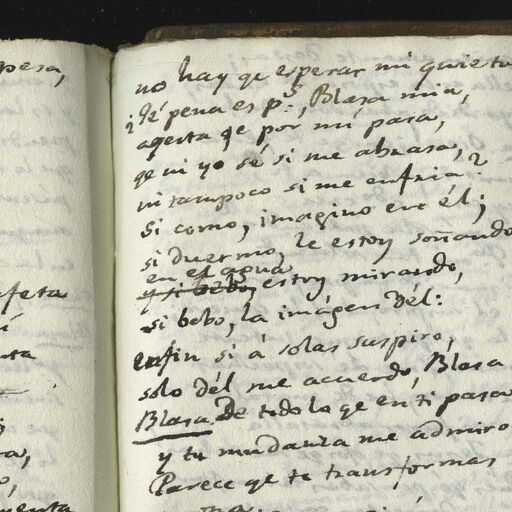 pesa,
no hay qe esperar mi quietu
¿Qé pena es p.s, Blasa mia,
aqesta qe por mí pasa,
qe ni yo sé si me abrasa,
ni tampoco si me enfria?
Si como, imagino en él;
si duermo, le estoy soñando
en el agua
y si bebo, estoy mirando,
si bebo, la imágen dél:
enfin si á solas suspiro,
solo dél me acuerdo, Blasa
Blasa. De todo lo qe en ti pasa
y tu mudanza me admiro
Parece qe te transformas